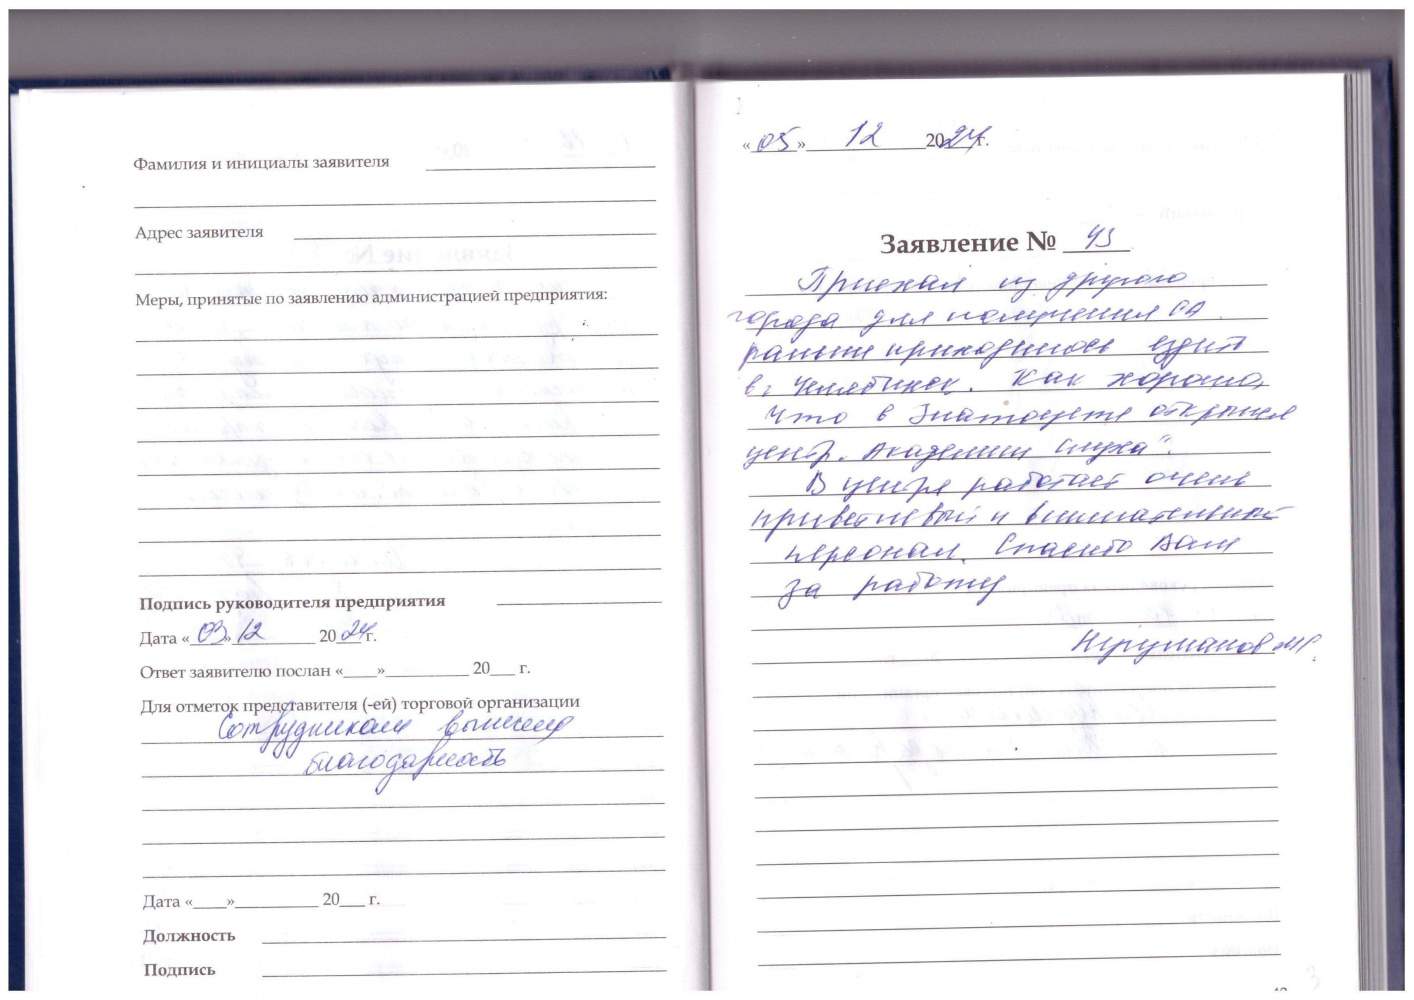 Фамилия и инициалы заявителя
Адрес заявителя
Меры, принятые по заявлению администрацией предприятия:
Подпись руководителя предприятия
Дата «03» 12 2024 г.
Ответ заявителю послан «____»__________ 20___ г.
Для отметок представителя (-ей) торговой организации
Сотрудникам вынесена
благодарность
Дата «____»__________ 20___ г.
Должность
Подпись
«05» 12 2024 г.
Заявление №
Приехал из другого
города для получения СА
раньше приходилось ездить
в г. Челябинск. Как хорошо,
что в Златоусте открылся
центр "Академии слуха".
В центре работает очень
приветливый и внимательный
персонал. Спасибо Вам
за работу